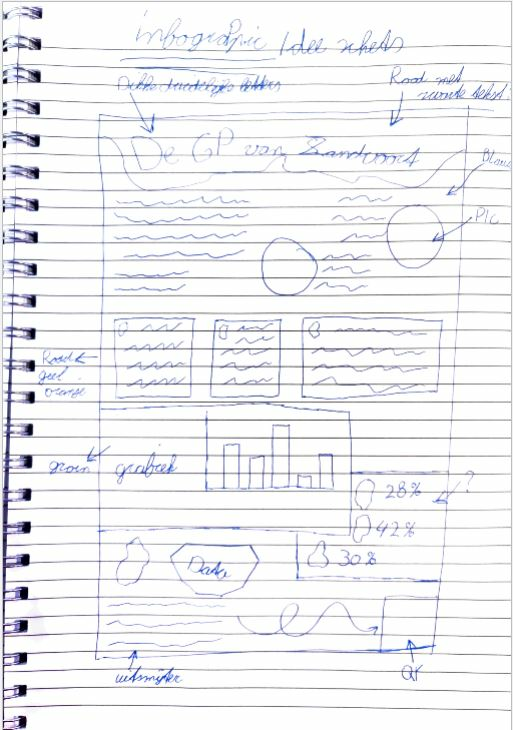 Infographic Idee schets
Dikke duidelijke letters
Rood met
zwarte tekst
De GP van Zandvoort
Blauw
Pic
Rood
geel
oranje
groen
grafiek
28%
?
42%
30%
Data
uitsmijter
QR